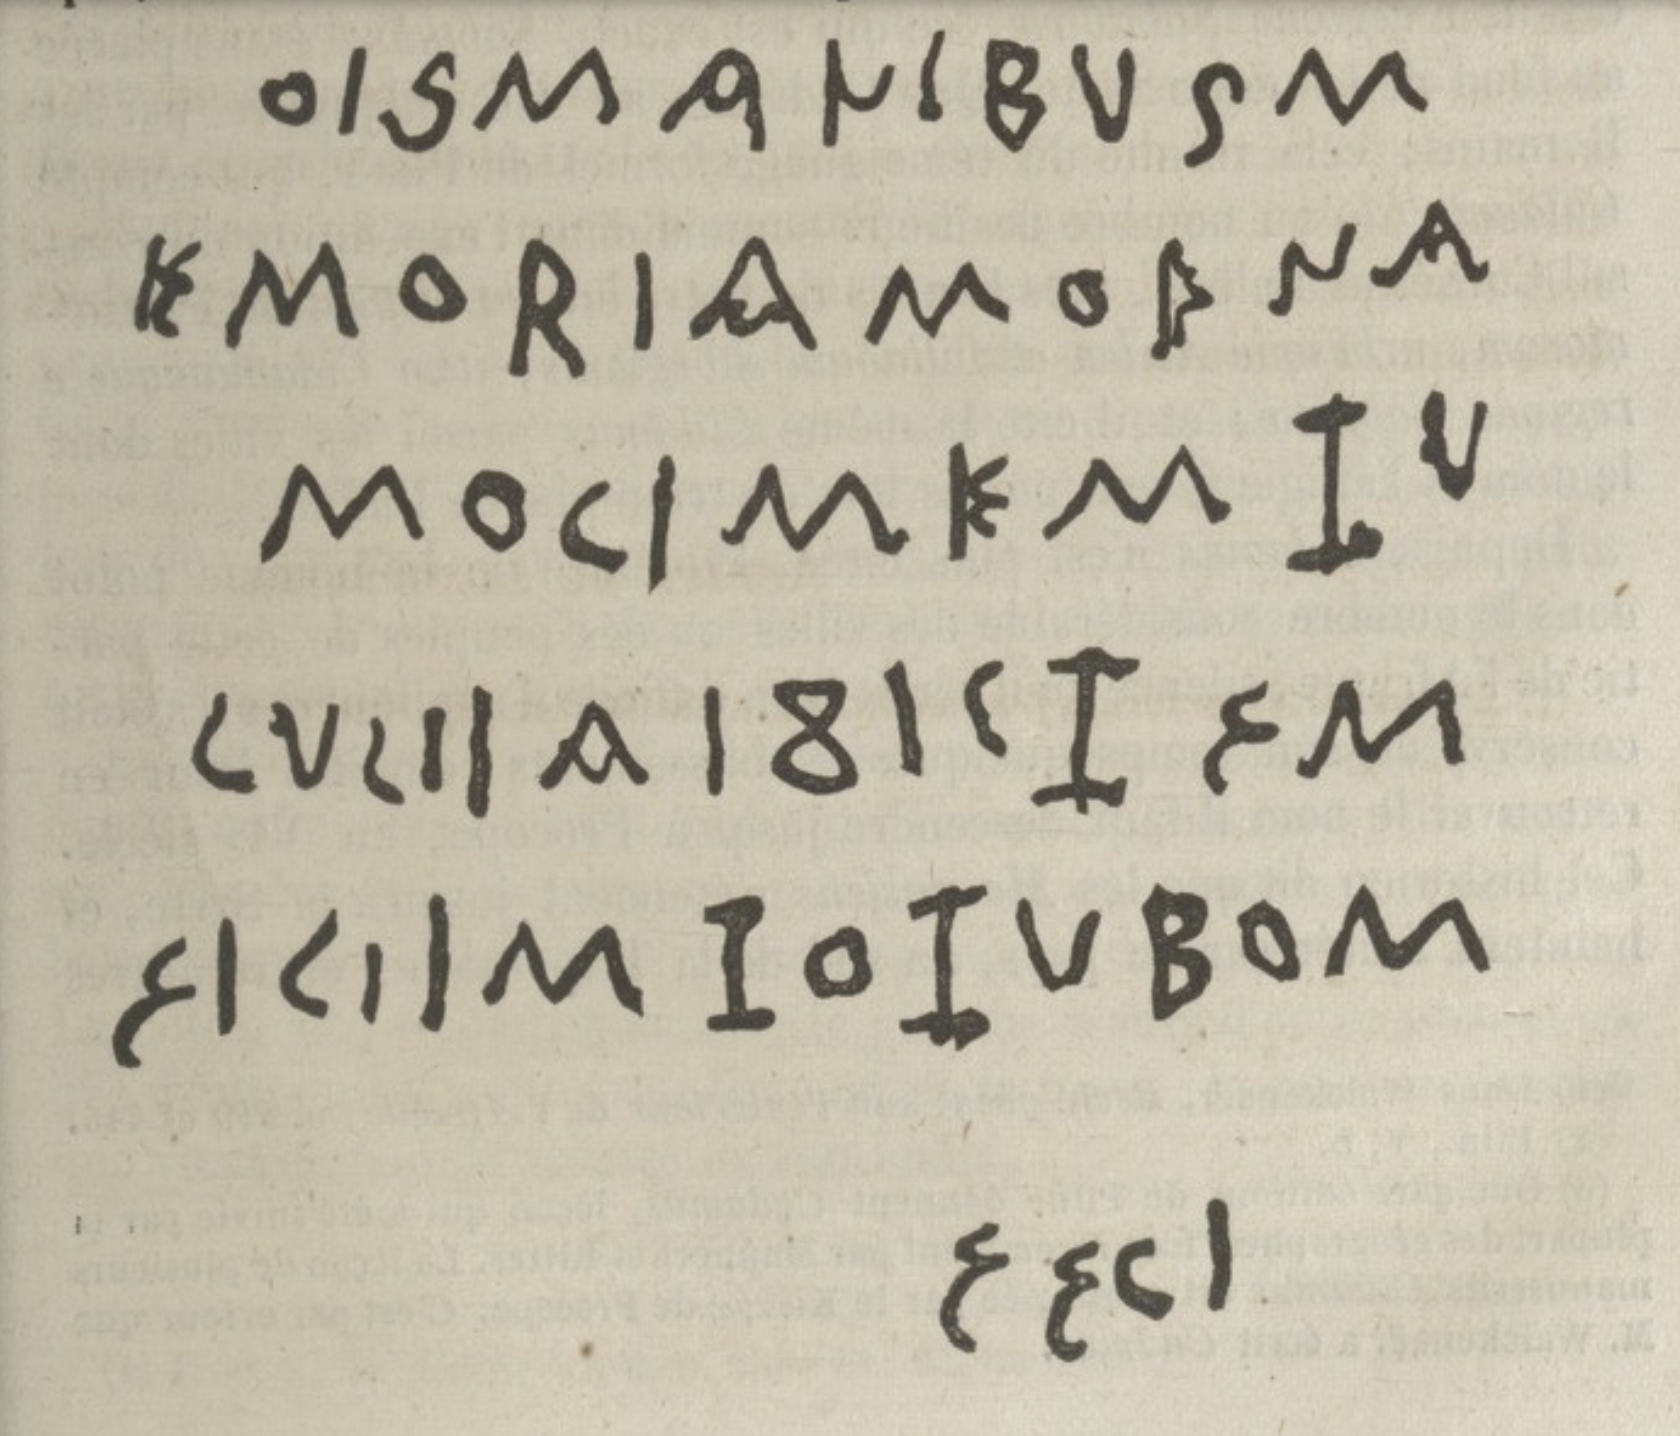 OISMANIBUSM
EMORIAMOBNA
MOCIMEMIU
CVCIIAIBICIEM
EICIIMIOIUBOM
EECI